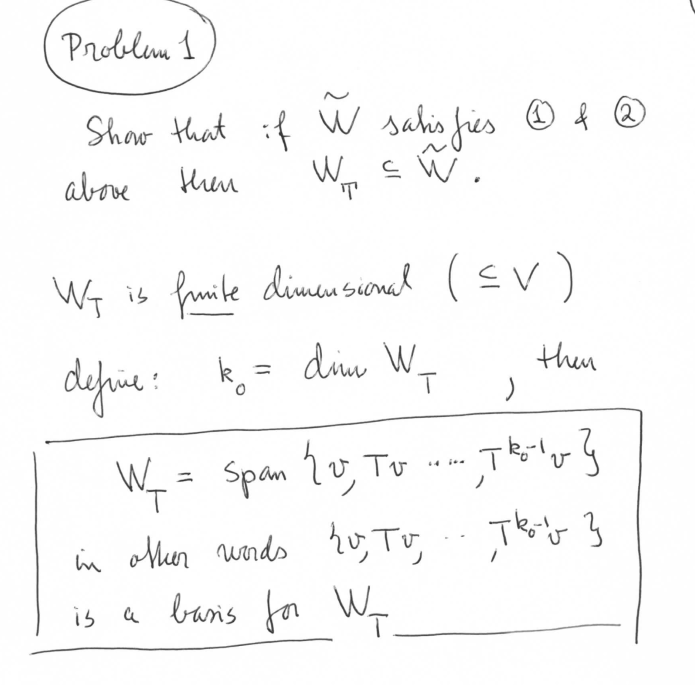 Problem 1
Show that if W̃ satisfies ① & ②
above then W_T ⊆ W̃.
W_T is finite dimensional (⊆ V)
define: k₀ = dim W_T , then
W_T = span {v, Tv ....., T^{k₀-1}v}
in other words {v, Tv, .. , T^{k₀-1}v}
is a basis for W_T